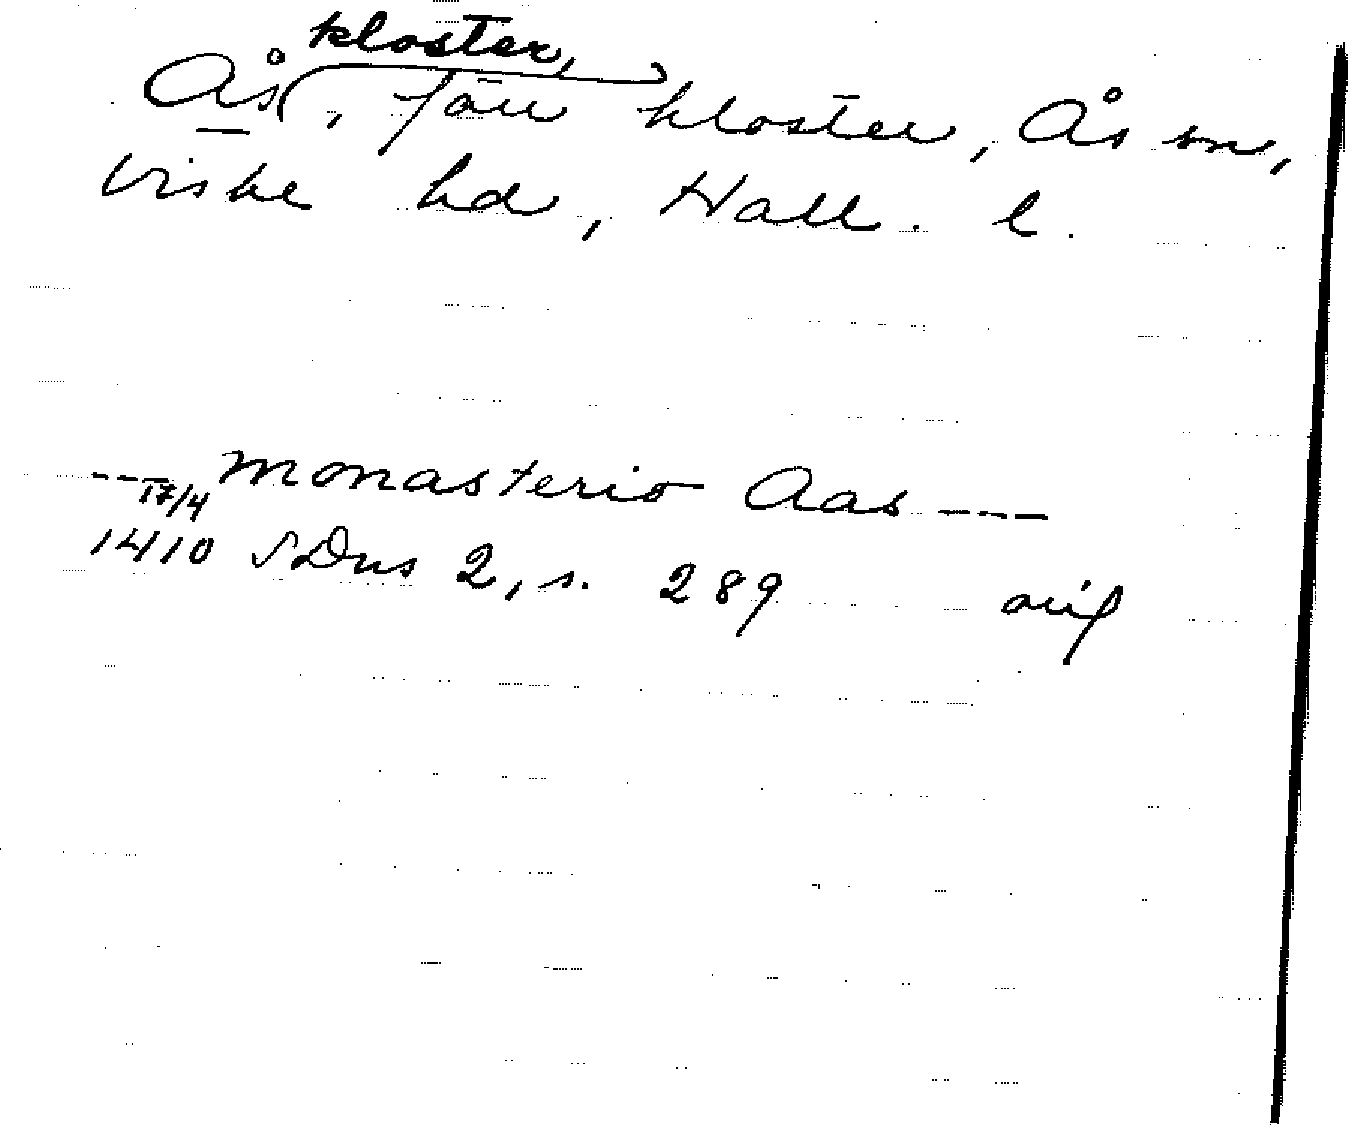 kloster,
Ås, förr kloster, Ås sn,
Viske hd, Hall. l.
--- monasterio Aas ---
17/4
1410 SDns 2, s. 289